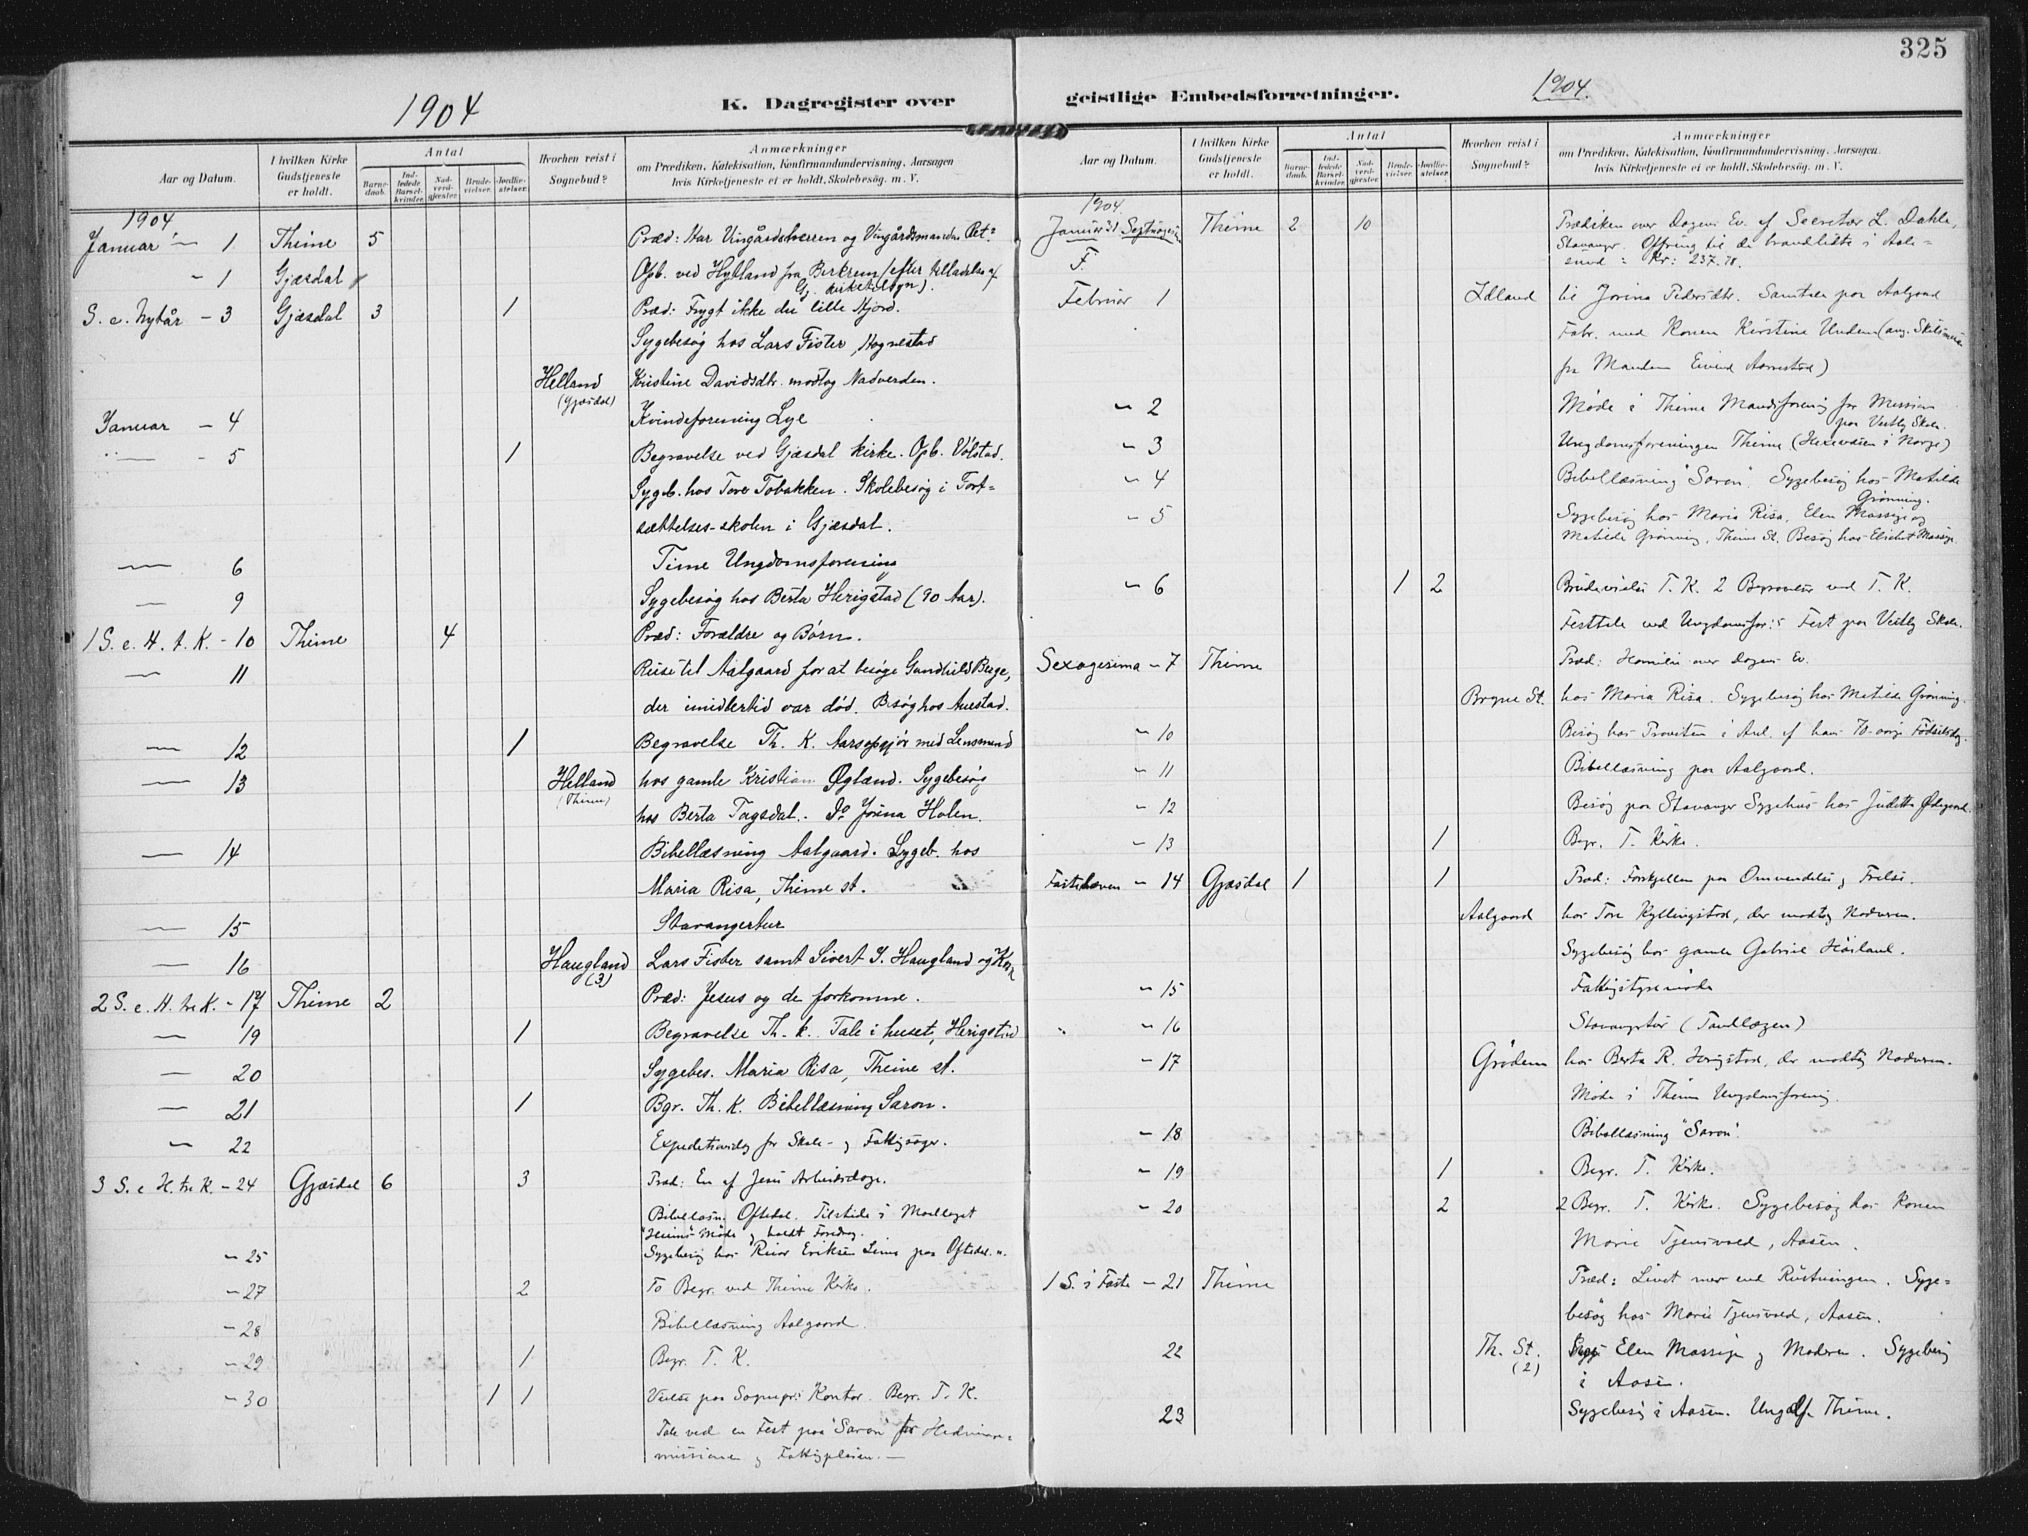 325
1904
K. Dagregister over
geistlige Embedsforretninger.
1904.
Aar og Datum.
I hvilken Kirke Gudstjeneste er holdt.
Antal
Barnedaab.
Indledede Barselkvinder.
Nadverdgjester.
Brudevielser.
Jordfæstelser.
Hvorhen reist i Sognebud?
Anmærkninger
om Prædiken, Katekisation, Konfirmandundervisning, Aarsagen
hvis Kirketjeneste ei er holdt, Skolebesøg, m. V.
1904
Januar - 1 Thime 5 Præd: Nar Vingårdsherren og Vingårdsmanden
- 1 Gjæsdal Opb. ved Hylland fra Berkrem (efter tilladelse af
S. e. Nytår - 3 Gjæsdal 3 1 Præd: Frygt ikke du lille Hjord.
Sygebesøg hos Lars Fister, Hognestad
Helland (Gjæsdal) Kristine Davidsdtr. modtog Nadverden.
Januar - 4 Kvindeforening Lye
- 5 1 Begravelse ved Gjæsdal Kirke. Opb. Vølstad.
Sygeb. hos Tore Tobakken. Skolebesøg i Fort=
sættelses-skolen i Gjæsdal.
— 6 Time Ungdomsforening
— 9 Sygebesøg hos Berta Herigstad (90 Aar).
1 S. e. H. t. K. - 10 Thime 4 Præd: Forældre og Børn.
— 11 Reise til Aalgaard for at besøge Gunhild Berge,
der imidlertid var død. Besøg hos Auestad.
— 12 1 Begravelse Th. K. Aarsopgjör med Lensmand
— 13 Helland (Thime) hos gamle Kristian Øgland. Sygebesøg
hos Berta Tagsdal. Do Jorina Holen.
— 14 Bibellæsning Aalgaard. Sygeb. hos
Maria Risa, Thime st.
— 15 Stavangertur
— 16 Haugland (3) Lars Fister samt Sivert S. Haugland og Kone
2 S. e. H. tre K. - 17 Thime 2 Præd: Jesus og de forkomne.
— 19 1 Begravelse Th. K. Tale i huset, Herigstad
— 20 Sygebes. Maria Risa, Thime st.
— 21 1 Bgr. Th. K. Bibellæsning Saron.
— 22 Expeditionsdag for Skole- og Fattigsager.
3 S. e. H. tre K. - 24 Gjæsdal 6 3 Præd: En af Jesu Arbeidsdage.
Bibellæsn. Oftedal. Tilstede i
"Heims" Møde og holdt Foredrag.
- 25 Sygebesøg hos Reier Eriksen Lima paa Oftedal.
- 27 2 To Begr. ved Thime Kirke.
- 28 Bibellæsning Aalgaard.
- 29 1 Begr. T. K.
- 30 1 1 Vielse paa Sognepr. Kontor. Begr. T. K.
Tale ved en Fest paa "Saron" for Hedninge=
missionen og Fattigpleien. —
Aar og Datum.
I hvilken Kirke Gudstjeneste er holdt.
Antal
Barnedaab.
Indledede Barselkvinder.
Nadverdgjester.
Brudevielser.
Jordfæstelser.
Hvorhen reist i Sognebud?
Anmærkninger
om Prædiken, Katekisation, Konfirmandundervisning, Aarsagen
hvis Kirketjeneste ei er holdt, Skolebesøg, m. V.
1904.
Januar 31 Thime 2 10 Prædiken over Dagens Ev. af Secretær L. Dahle,
Stavanger. Offring til de brandlidte i Aale=
sund = Kr: 237.78.
Februar 1 Idland til Jorina Pedersdtr. Samtale paa Aalgaard
Fabr. med Konen Kirstine Undem (ang. Skilsmisse
fra Manden Eivind Aarrestad)
- 2 Møde i Thime Mandsforening for Mission
paa Veitly Skole.
- 3 Ungdomsforeningen Thime (Hexevæsen i Norge)
- 4 Bibellæsning "Saron". Sygebesøg hos Matilde
Grønning.
- 5 Sygebesøg hos Maria Risa, Elen Massige og
Matilde Grønning, Thime St. Besøg hos Massige.
- 6 1 2 Brudevielse T. K. 2 Begravelser ved T. K.
Festtale ved Ungdomsfor:s Fest paa Veitly Skole.
Sexagesima - 7 Thime Præd: Homilie over Dagens Ev.
Bryne St. hos Maria Risa. Sygebesøg hos Matilde Grønning.
- 10 Besøg hos Provsten i Anl. af hans 70-aarige Fødselsdag.
- 11 Bibellæsning paa Aalgaard.
- 12 Besøg paa Stavanger Sygehus hos Judith Ødegaard.
- 13 1 Begr. T. Kirke.
Fastelaven - 14 Gjæsdal 1 1 Præd: Forskjellen paa Omvendelse og Frelse.
Aalgaard hos Tore Kyllingstad, der modtog Nadveren.
Sygebesøg hos gamle Gabriel Høiland.
- 15 Fattigstyremøde
- 16 Stavangertur (Tandlægen)
- 17 Grødem hos Berta R. Herigstad, der modtog Nadveren.
Møde i Thime Ungdomsforening.
- 18 Bibellæsning "Saron".
- 19 1 Begr. T. Kirke.
- 20 2 2 Begr. T. Kirke. Sygebesøg hos Konen
Marie Tjensvold, Aasen.
1 S. i Faste - 21 Thime Præd: Livet mer end Rustningen. Syge=
besøg hos Marie Tjensvold, Aasen.
22 Th. St. (2) Elen Massige og Moderen. Sygebesøg
i Aasen.
23 Sygebesøg i Aasen. Ungdf. Thime.